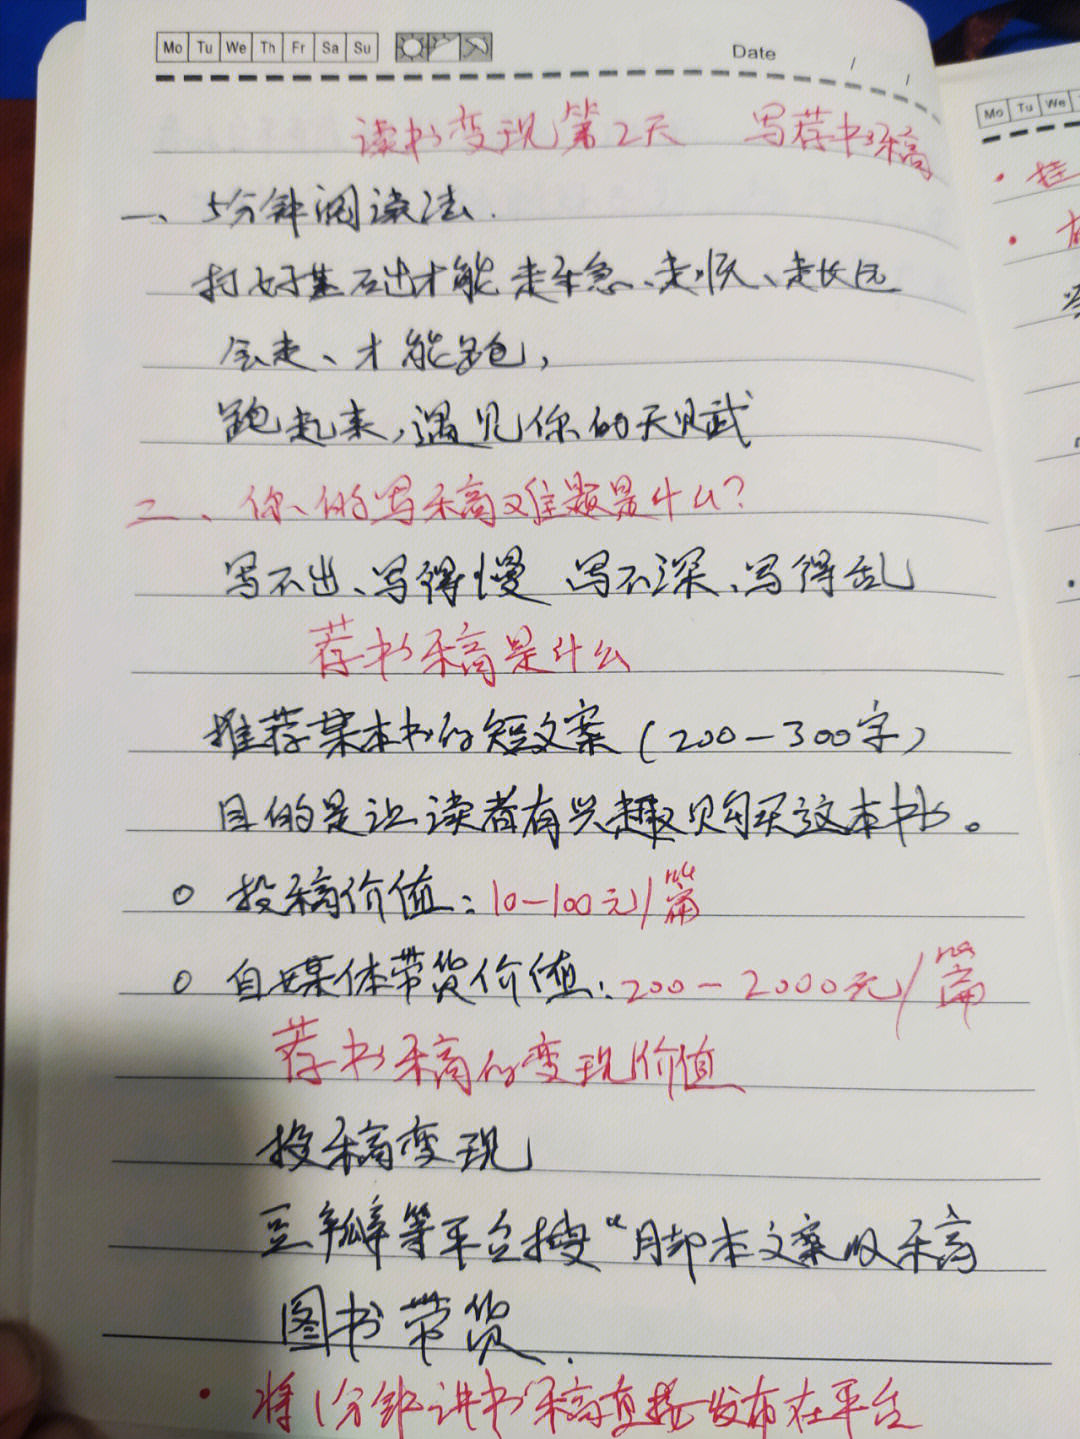 Mo Tu We Th Fr Sa Su
Date / /
读书变现第2天 写荐书稿
一、5分钟阅读法.
打好基础才能走平急、走顺、走长远
会走、才能跑,
跑起来,遇见你的天赋
二、你的写稿难题是什么?
写不出、写得慢 写不深、写得乱
荐书稿是什么
推荐某本书的短文案(200-300字)
目的是让读者有兴趣购买这本书。
○ 投稿价值:10-100元/篇
○ 自媒体带货价值:200-2000元/篇
荐书稿的变现价值
投稿变现
豆瓣等平台搜“脚本文案收稿
图书带货.
· 将1分钟讲书稿直接发布在平台
Mo Tu We